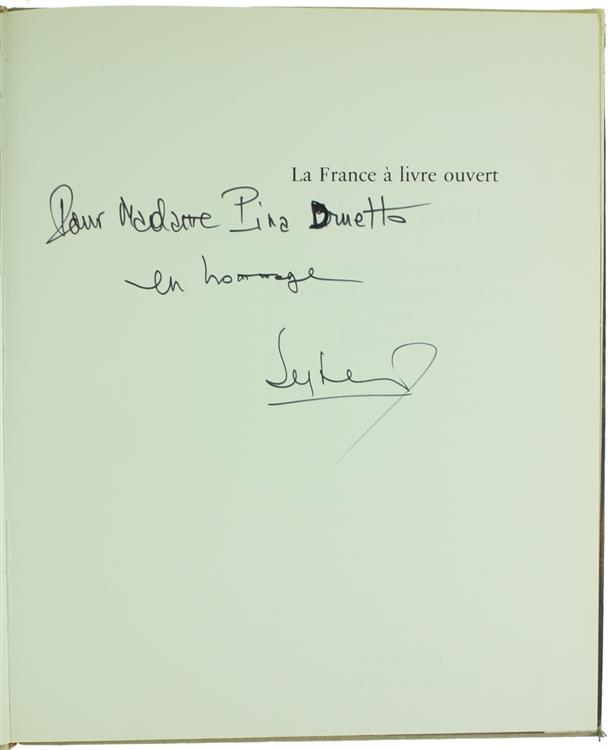 La France à livre ouvert
Pour Madame Pina Druetto
en hommage